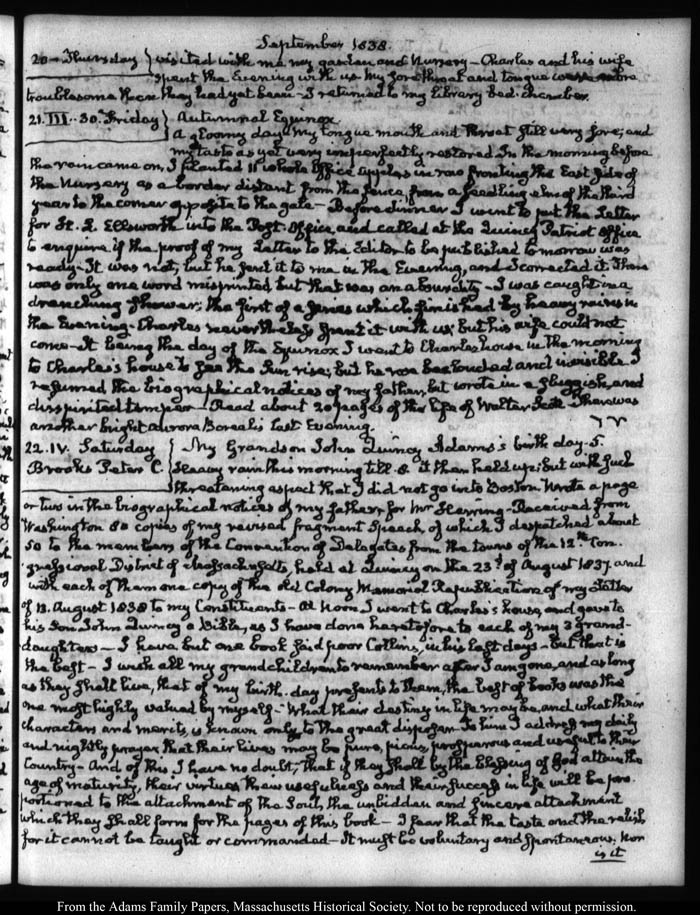 September 1838.
20. Thursday } visited with me my garden and Nursery – Charles and his wife
spent the Evening with us. My sore throat and tongue were more
troublesome than they had yet been – I returned to my library bed-chamber.
21. III. 30. Friday } Autumnal Equinox
A gloomy day. My tongue mouth and throat still very sore; and
my taste as yet very imperfectly restored. In the morning before
the rain came on, I planted 11 whole Office apples in row fronting the East side of
the Nursery as a border distant from the fence, from a seedling elm of the third
year to the corner opposite to the gate – Before dinner I went to put the Letter
for H. L. Ellsworth into the Post-Office, and called at the Quincy Patriot Office
to enquire if the proof of my Letter to the Editor to be published tomorrow was
ready – It was not; but he sent it to me in the Evening, and I corrected it. There
was only one word misprinted but that was an absurdity – I was caught in a
drenching shower; the first of a series which finished by heavy rains in
the Evening – Charles nevertheless spent it with us; but his wife could not
come – It being the day of the Equinox I went to Charles's house in the morning
to Charles's house to see the Sun rise; but he rose beclouded and invisible. I
resumed the biographical notices of my father, but wrote in a sluggish, and
disspirited temper – Read about 20 pages of the Life of Walter Scott. There was
another bright Aurora Borealis last Evening.
22. IV. Saturday } My Grandson John Quincy Adams's birth day. 5.
Brooks Peter C. } Heavy rain this morning till 8. it then held up; but with such
threatening aspect that I did not go into Boston. Wrote a page
or two in the biographical notices of my father, for Mr Herring – Received from
Washington 80 copies of my revised fragment Speech of which I despatched about
50 to the members of the Convention of Delegates from the towns of the 12th. Con-
gressional District of Massachusetts, held at Quincy on the 23d. of August 1837. and
with each of them one copy of the Old Colony Memorial Republication of my Letter
of 13. August 1838 to my Constituents – At Noon I went to Charles's house, and gave to
his Son John Quincy a Bible, as I have done heretofore to each of my 3 grand-
daughters – I have but one book said poor Collins, in his last days – but that is
the best – I wish all my grandchildren to remember after I am gone, and as long
as they shall live, that of my birth-day presents to them, the best of books was the
one most highly valued by myself – What their destiny in life may be, and what their
characters and merits, is known only to the great disposer. To him I address my daily
and nightly prayer, that their lives may be pure, pious, prosperous and useful to their
Country – And of this I have no doubt; that if they shall by the blessing of God attain the
age of maturity, their virtues their usefulness and their success in life will be pro-
portioned to the attachment of the Soul, the unbidden and sincere attachment
which they shall form for the pages of this book – I fear that the taste and the relish
for it cannot be taught or commanded – It must be voluntary and spontaneous; nor
is it
From the Adams Family Papers, Massachusetts Historical Society. Not to be reproduced without permission.